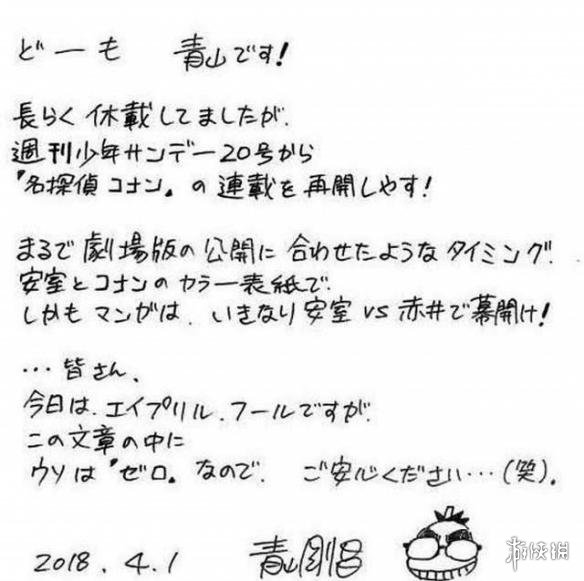 どーも 青山です!
長らく休載してましたが、
週刊少年サンデー20号から
『名探偵コナン』の連載を再開しやす!
まるで劇場版の公開に合わせたようなタイミング、
安室とコナンのカラー表紙で、
しかもマンガは、いきなり安室vs赤井で幕開け!
…皆さん、
今日は、エイプリル、フールですが、
この文章の中に
ウソは『ゼロ』なので、ご安心ください…(笑)。
2018.4.1 青山剛昌
游侠网